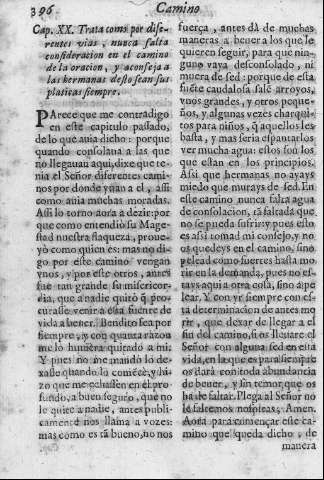 396
Camino
Cap. XX. Trata como por dife-
rentes vias, nunca falta
consideracion en el camino
de la oracion, y aconseja a
las hermanas desto sean sus
platicas siempre.
PArece que me contradigo
en este capitulo passado,
de lo que auia dicho: porque
quando consolaua a las que
no llegauan aqui, dixe que te-
nia el Señor diferentes cami-
nos por donde yuan a el, assi
como auia muchas moradas.
Assi lo torno aora a dezir: por
que como entendiò su Mage-
stad nuestra flaqueza, proue-
yò como quien es: mas no di-
go por este camino vengan
vnos, y por este otros, antes
fue tan grande su misericor-
dia, que a nadie quitò q̃ pro-
curasse venir a esta fuente de
vida a beuer. Bendito sea por
siempre, y con quanta razon
me lo huuiera quitado a mi.
Y pues no me mandò lo de-
xasse quando lo comēcè, y hi-
zo que me echassen en el pro-
fundo, a buen seguro, que no
le quite a nadie, antes publi-
camente nos llama a vozes:
mas como es tã bueno, no nos
fuerça, antes dà de muchas
maneras a beuer a los que le
quieren seguir, para que nin-
guno vaya desconsolado, ni
muera de sed: porque de esta
fuēte caudalosa salē arroyos,
vnos grandes, y otros peque-
ños, y algunas vezes charqui-
tos para niños, q̃ aquello les
basta, y mas seria espantarlos
ver mucha agua: estos son los
que estan en los principios.
Assi que hermanas no ayays
miedo que murays de sed. En
este camino nunca falta agua
de consolacion, tã faltada que
no se pueda sufrir, y pues esto
es assi tomad mi consejo, y no
os quedeys en el camino, sino
pelead como fuertes hasta mo
rir en la demanda, pues no es-
tays aqui a otra cosa, sino a pe
lear. Y con yr siempre con es-
ta determinacion de antes mo
rir, que dexar de llegar a el
fin del camino, si os lleuare el
Señor con alguna sed en esta
vida, en la que es para siempre
os darà con toda abundancia
de beuer, y sin temor que os
ha de faltar. Plega al Señor no
le faltemos nosotras, Amen.
Aora para començar este ca-
mino que queda dicho, de
manera